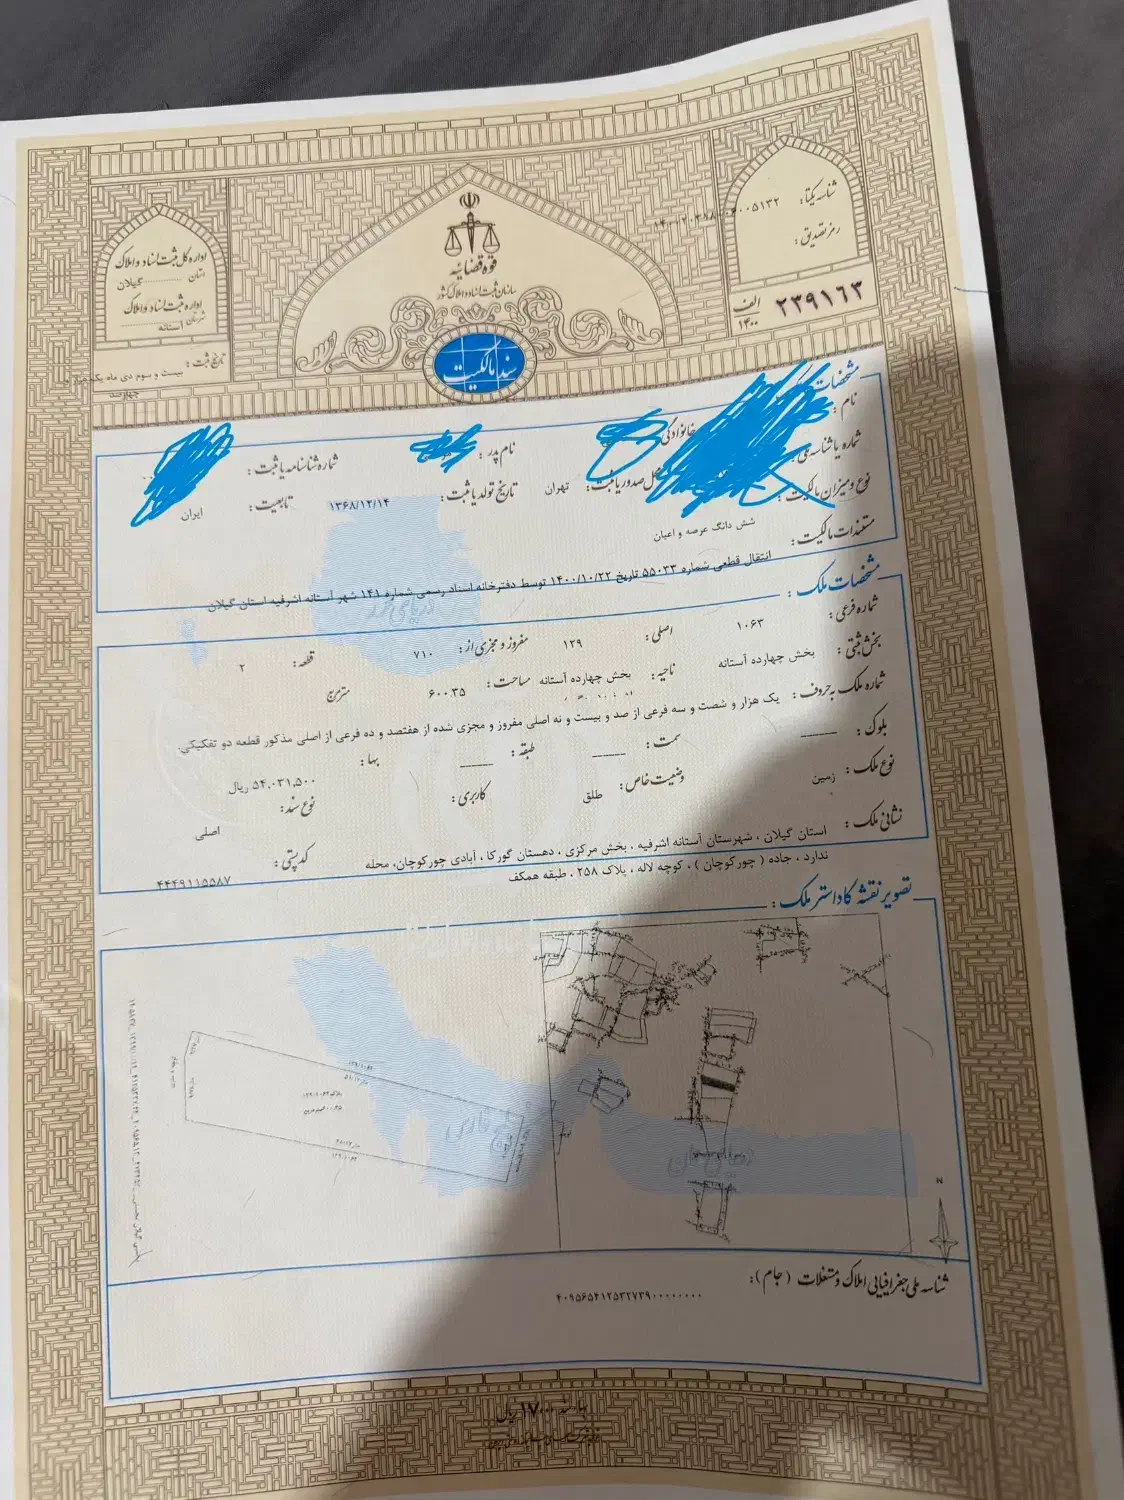 قوه قضائیه
سازمان ثبت اسناد و املاک کشور
سند مالکیت
شناسه یکتا:
رمز تصدیق:
الف ۱۴۰۰ ۲۳۹۱۶۳
اداره کل ثبت اسناد و املاک
استان گیلان
اداره ثبت اسناد و املاک
شهرستان آستانه
تاریخ ثبت:
بیست و سوم دی ماه
چهارصد
مشخصات
نام:
خانوادگی
نام پدر:
شماره شناسنامه یا ثبت:
شماره یا شناسه ملی:
محل صدور یا ثبت: تهران
تاریخ تولد یا ثبت: ۱۳۶۸/۱۲/۱۴
تابعیت: ایران
نوع و میزان مالکیت:
شش دانگ عرصه و اعیان
مستندات مالکیت:
انتقال قطعی شماره ۵۵۰۳۳ تاریخ ۱۴۰۰/۱۰/۲۲ توسط دفترخانه اسناد رسمی شماره ۱۴۱ شهر آستانه اشرفیه استان گیلان
مشخصات ملک:
شماره فرعی: ۱۰۶۳ اصلی: ۱۲۹ مفروز و مجزی از: ۷۱۰ قطعه: ۲
بخش ثبتی: بخش چهارده آستانه ناحیه: بخش چهارده آستانه مساحت: ۶۰۰.۳۵ مترمربع
شماره ملک به حروف: یک هزار و شصت و سه فرعی از صد و بیست و نه اصلی مفروز و مجزی شده از هفتصد و ده فرعی از اصلی مذکور قطعه دو تفکیکی.
بلوک: سمت: طبقه: بها: ۵۴,۰۳۱,۵۰۰ ریال
نوع ملک: زمین وضعیت خاص: طلق کاربری: نوع سند: اصلی
نشانی ملک: استان گیلان ، شهرستان آستانه اشرفیه ، بخش مرکزی ، دهستان گورکا ، آبادی چورکوچان، محله
ندارد ، جاده ( چورکوچان ) ، کوچه لاله ، پلاک ۲۵۸ ، طبقه همکف
کدپستی: ۴۴۴۹۱۱۵۵۸۷
تصویر نقشه کاداستر ملک:
دریای خزر
خلیج فارس
دریای عمان
N
شناسه ملی جغرافیایی املاک و مستغلات (جام):
۴۰۹۵۶۵۴۱۲۵۳۲۷۳۹۰۰۰۰۰۰۰۰